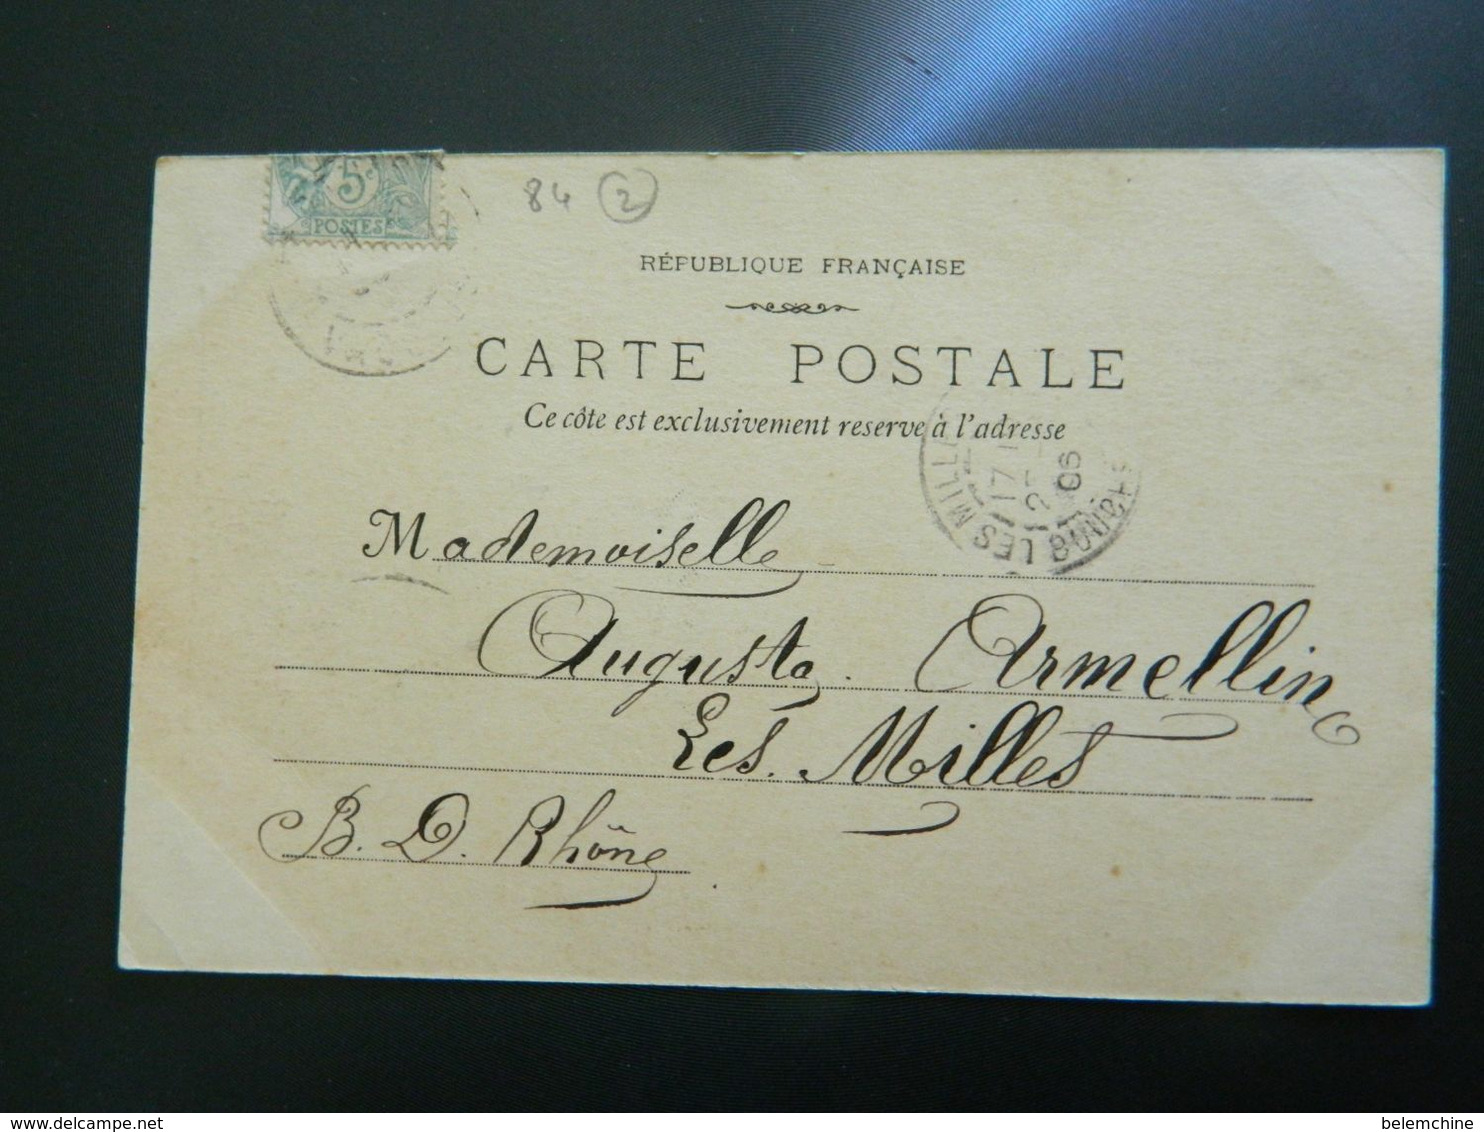 5c
POSTES
84 2
RÉPUBLIQUE FRANÇAISE
CARTE POSTALE
Ce côte est exclusivement reserve à l'adresse
LES MILL
17
2
06
Mademoiselle
Augusta Armellin
Les Milles
B. D. Rhône
www.delcampe.net
belemchine